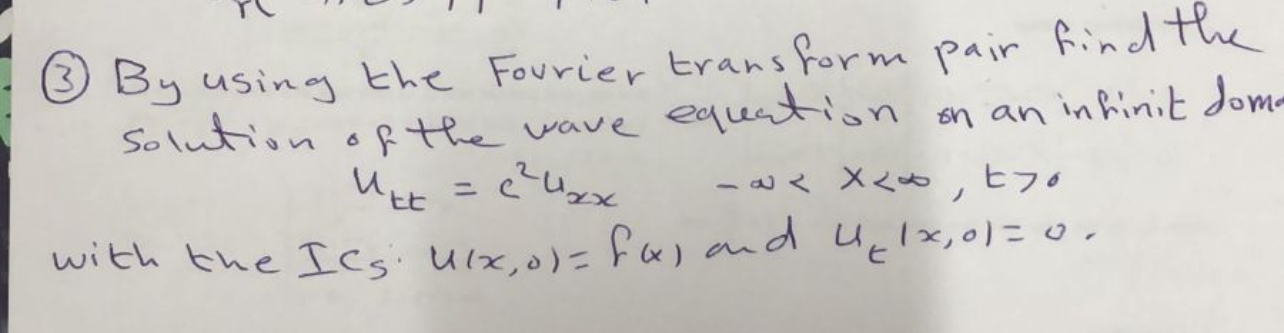 ③ By using the Fourier transform pair find the
Solution of the wave equation on an infinit doma
u_tt = c²u_xx   -∞ < x < ∞, t > 0
with the ICs: u(x,0) = f(x) and u_t(x,0) = 0.